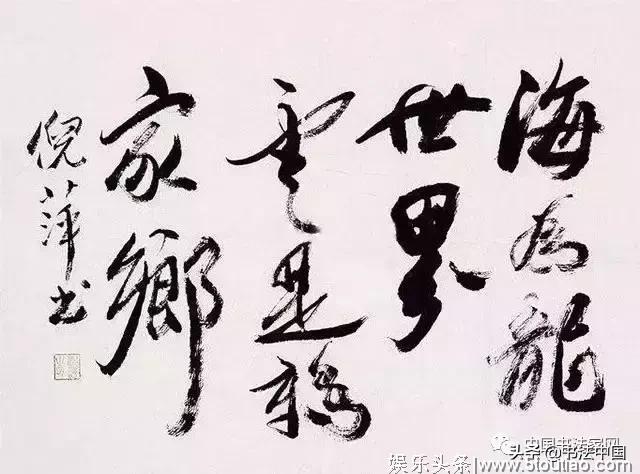 海為龍
世界
雲是鶴
家鄉
倪萍书
中国书法家网
头条@书法中国
娱乐头条